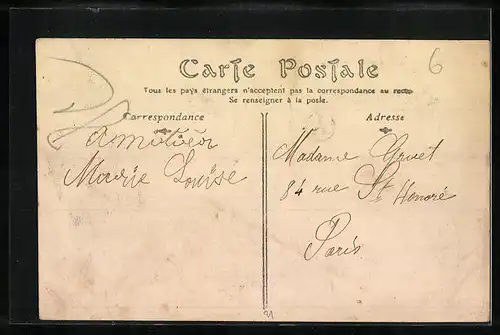 Carte Postale
6
Tous les pays étrangers n'acceptent pas la correspondance au recto
Se renseigner à la poste.
Correspondance
Marie Louise
Adresse
Madame
84 rue St Honoré
Paris
21